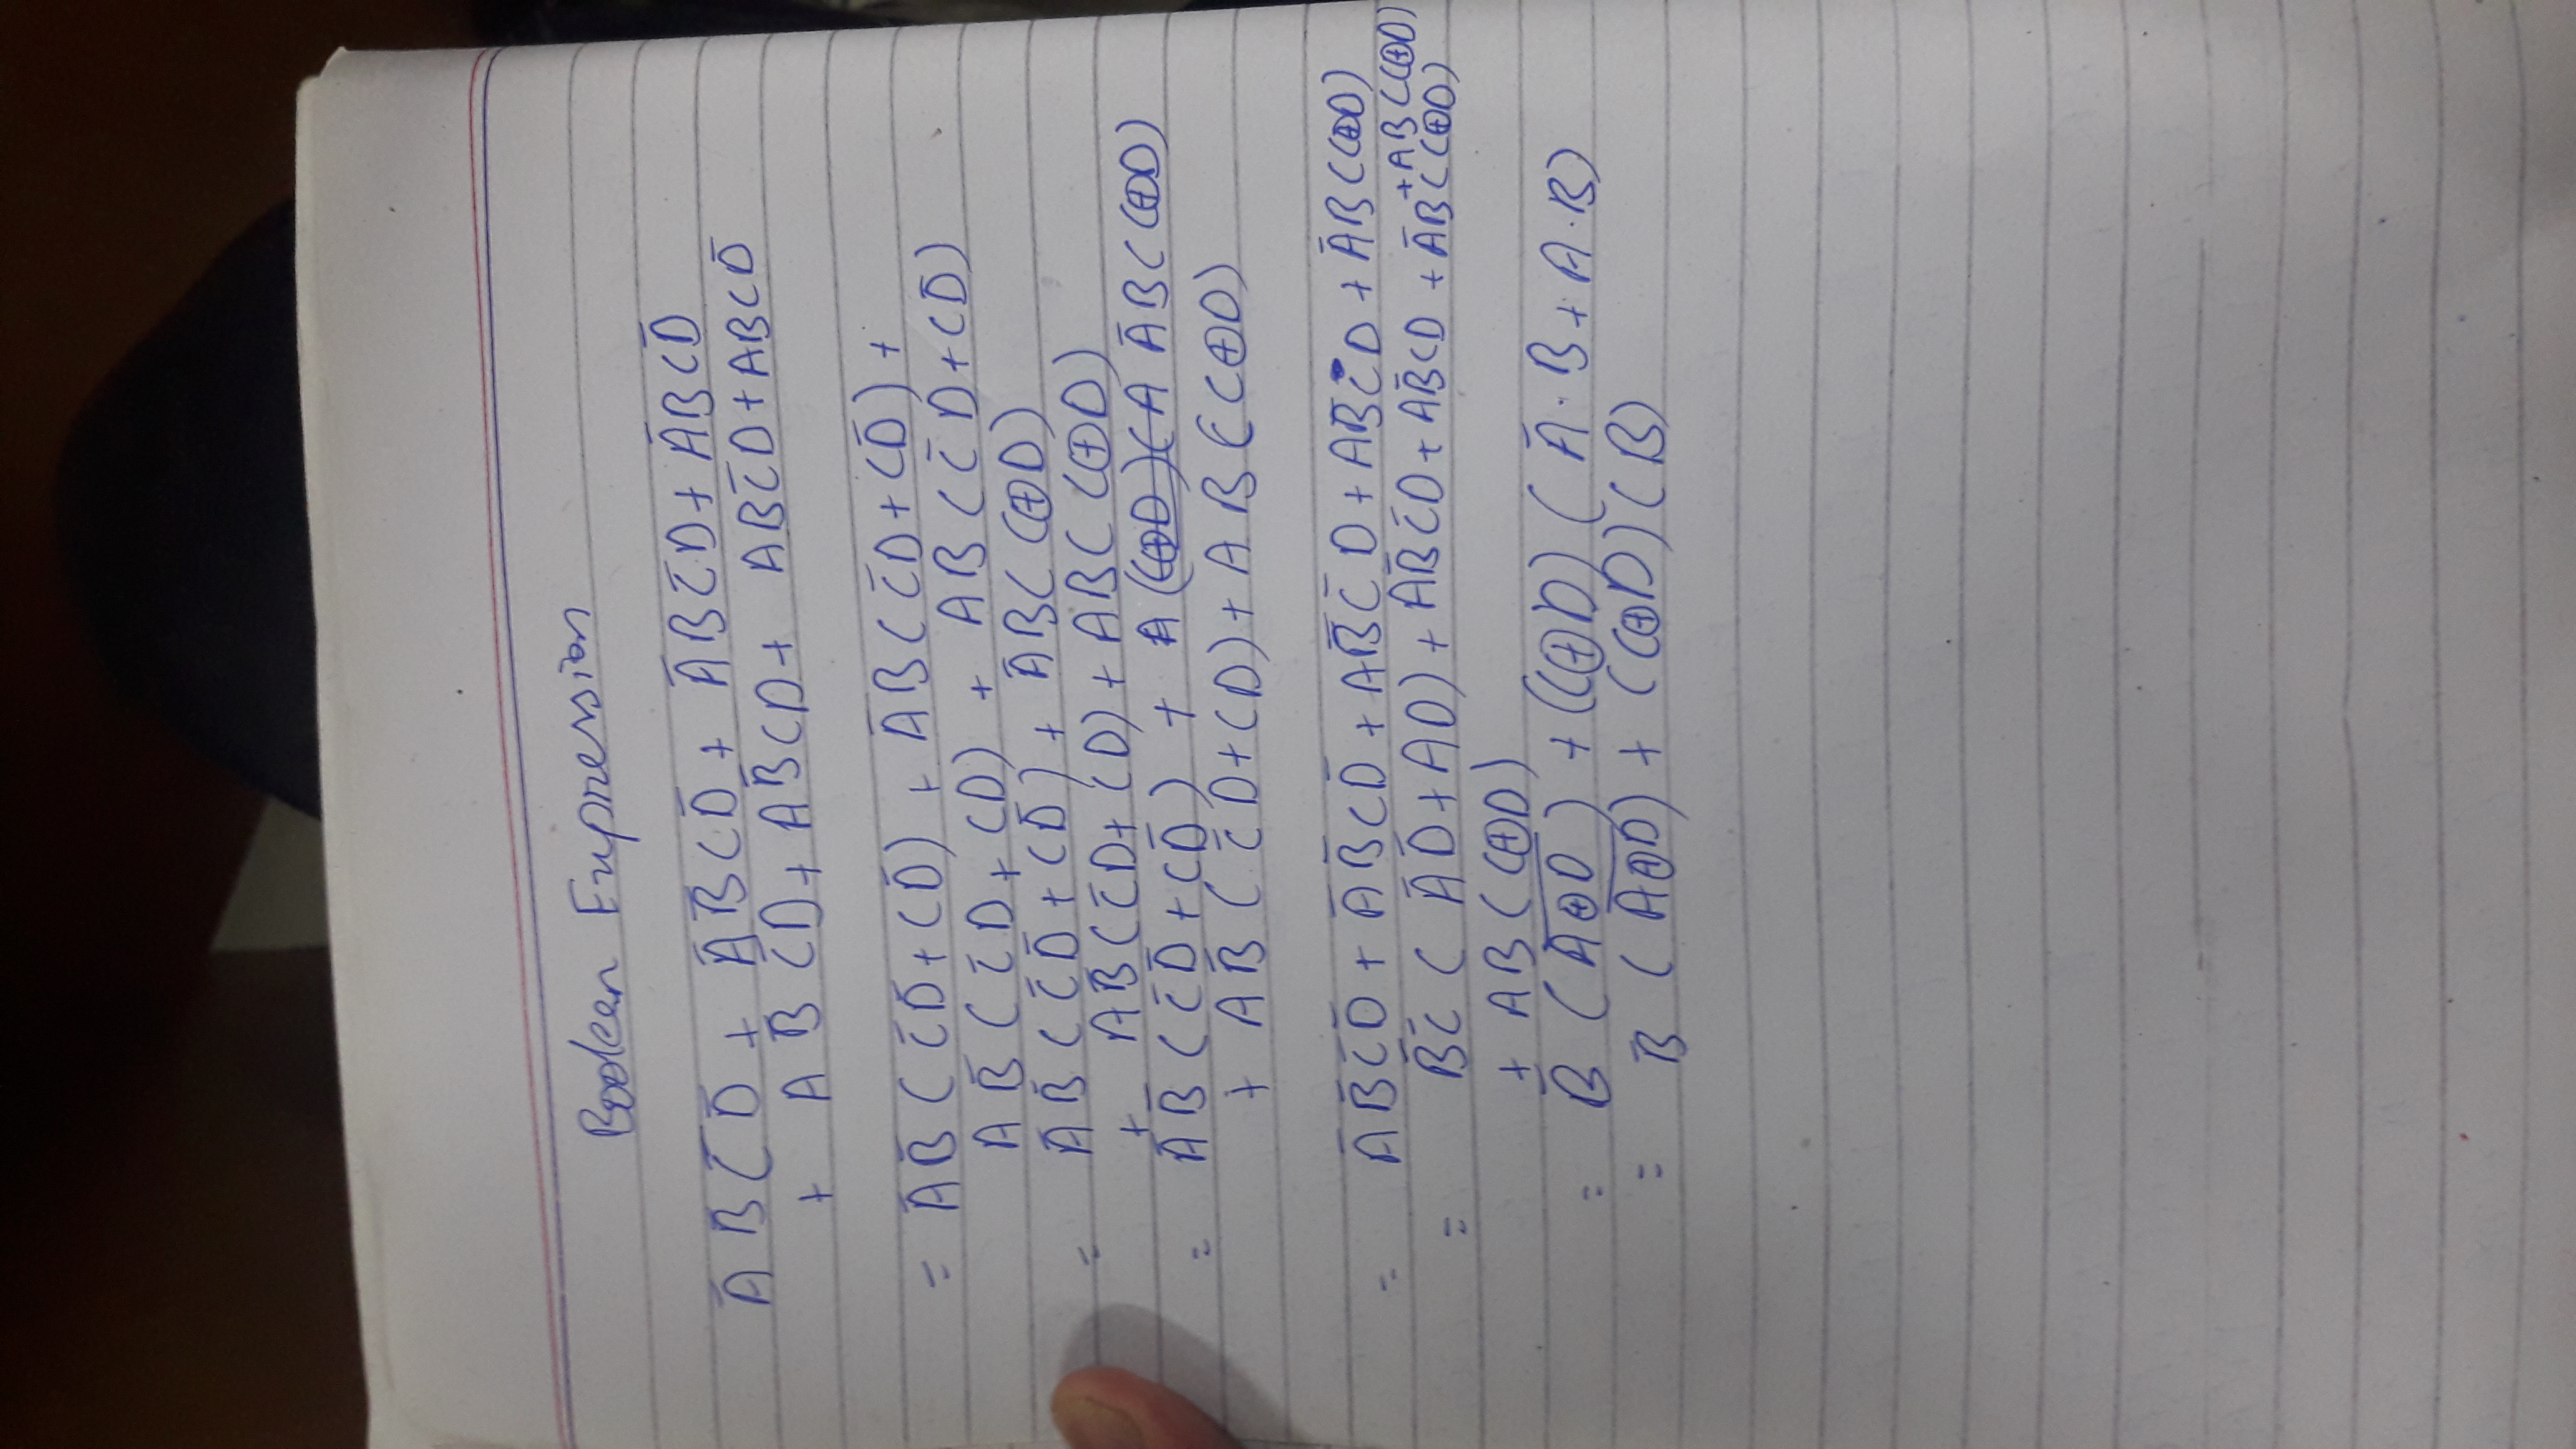 Boolean Expression
A̅ B̅ C̅ D̅ + A̅ B̅ C D̅ + A̅ B C̅ D + A̅ B C D̅
+ A B̅ C̅ D + A B̅ C D + A B C̅ D + A B C D̅
= A̅ B̅ ( C̅ D̅ + C D̅ ) + A̅ B ( C̅ D + C D̅ ) +
A B̅ ( C̅ D + C D ) + A B ( C̅ D + C D̅ )
= A̅ B̅ ( C̅ D̅ + C D̅ ) + A̅ B ( C ⊕ D )
+ A B̅ ( C̅ D + C D ) + A B ( C ⊕ D )
= A̅ B̅ ( C̅ D̅ + C D̅ ) + A̅ B ( C ⊕ D )
+ A B̅ ( C̅ D + C D ) + A B ( C ⊕ D )
= A̅ B̅ C̅ D̅ + A̅ B̅ C D̅ + A B̅ C̅ D + A B̅ C D + A̅ B ( C ⊕ D )
+ A B ( C ⊕ D )
= B̅ C̅ ( A̅ D̅ + A D ) + A B̅ C̅ D + A B̅ C D + A̅ B ( C ⊕ D )
+ A B ( C ⊕ D )
= B̅ ( A̅ ⊕̅ D̅ ) + ( C ⊕ D ) ( A̅ · B + A · B )
= B̅ ( A̅ ⊕̅ D̅ ) + ( C ⊕ D ) ( B )